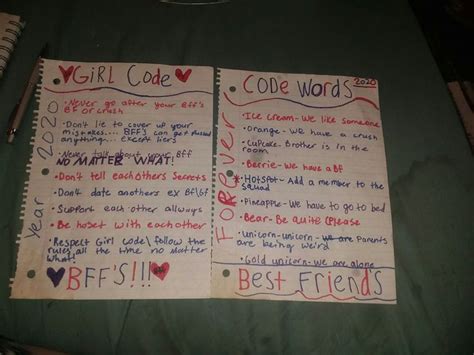 Girl Code
Year 2020
•Never go after your BFF's
BF or crush
•Don't lie to cover up your
mistakes... BFF's can get passed
anything... except liers
•Never talk about your BFF
NO MATTER WHAT!
•Don't tell each others Secrets
•Don't date anothers ex BF\GF
•Support each other allways
•Be hoset with eachother
•Respect Girl code\ follow the
rules all the time no Matter
What!
BFF'S!!!
Code Words
2020
Forever
•Ice cream- We like someone
•Orange- We have a crush
•Cupcake- Brother is in the
room
•Berrie- We have a BF
•Hotspot- Add a member to the
squad
•Pineapple- We have to go to bed
•Bear- Be quite (Please
•Unicorn-unicorn- we are Parents
are being weird
•Gold unicorn- we are alone
Best Friends